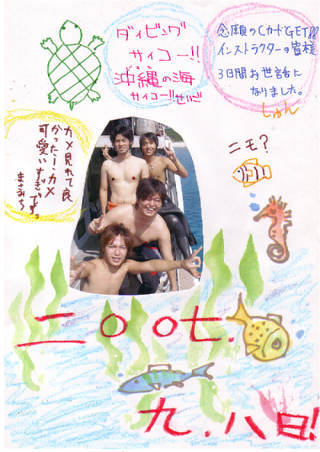 ダイビング
サイコー!!
沖縄の海
サイコー!!せいじ
念願のCカードGET!!!
インストラクターの皆様
3日間お世話に
なりました。
しゅん
カメ見れて良
かったー!カメ
可愛いすぎかです。
まさみち
ニモ?
二〇〇七.
九.八日!